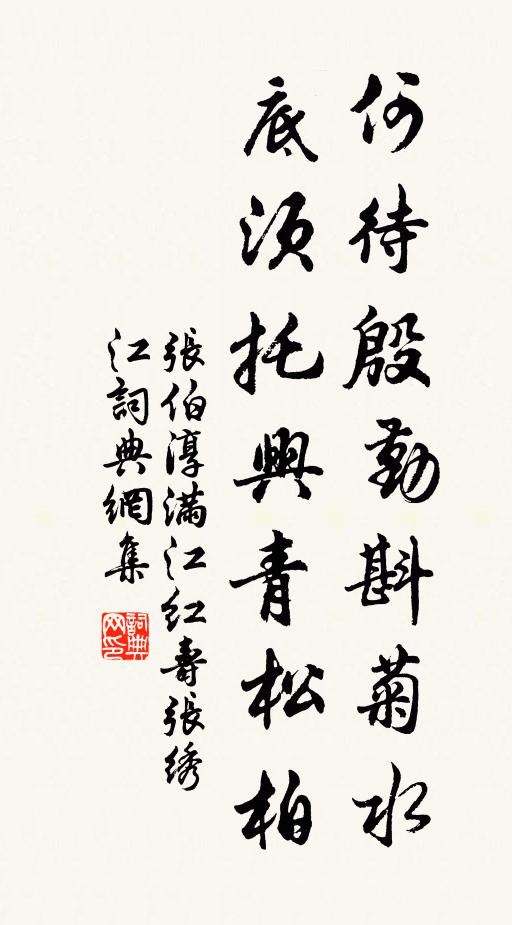 何待殷勤斟菊水
底須托興青松柏
張伯淳滿江紅壽張綉
江詞典網集
詞典网印